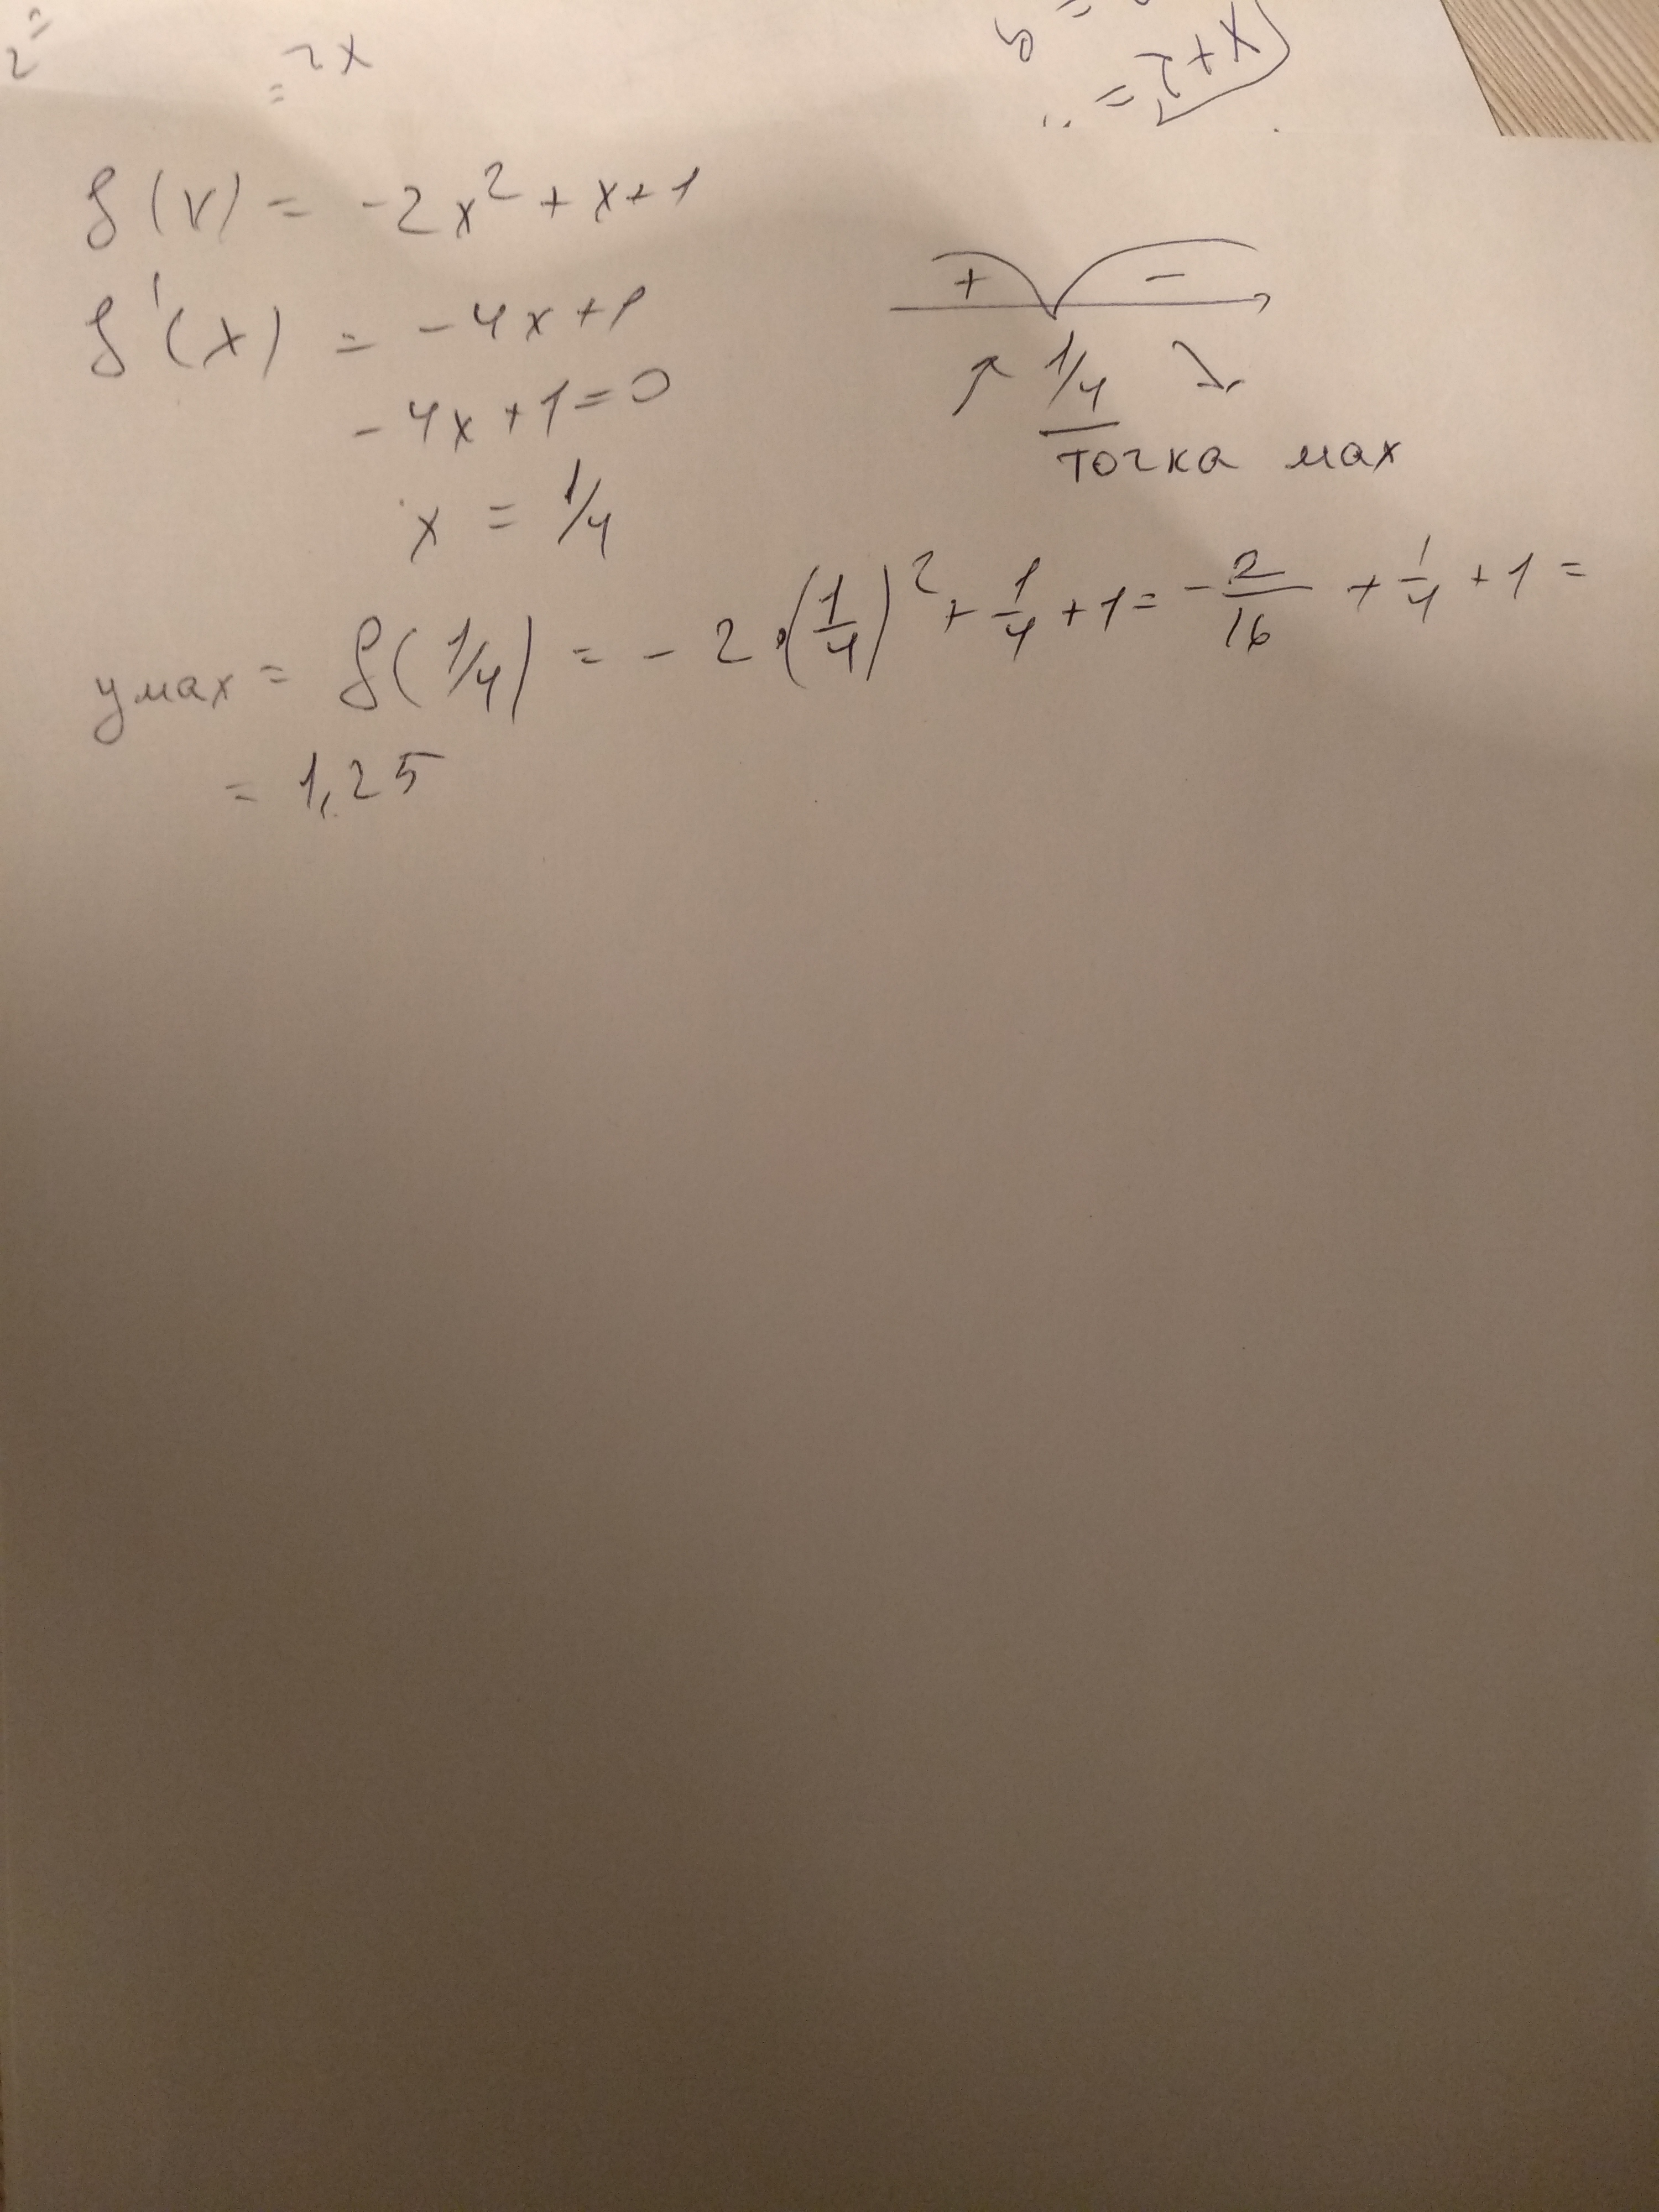 = 2x
= 2+x
f(x) = -2x² + x + 1
f'(x) = -4x + 1
-4x + 1 = 0
x = 1/4
+ -
1/4
точка max
y max = f(1/4) = -2·(1/4)² + 1/4 + 1 = -2/16 + 1/4 + 1 =
= 1,25